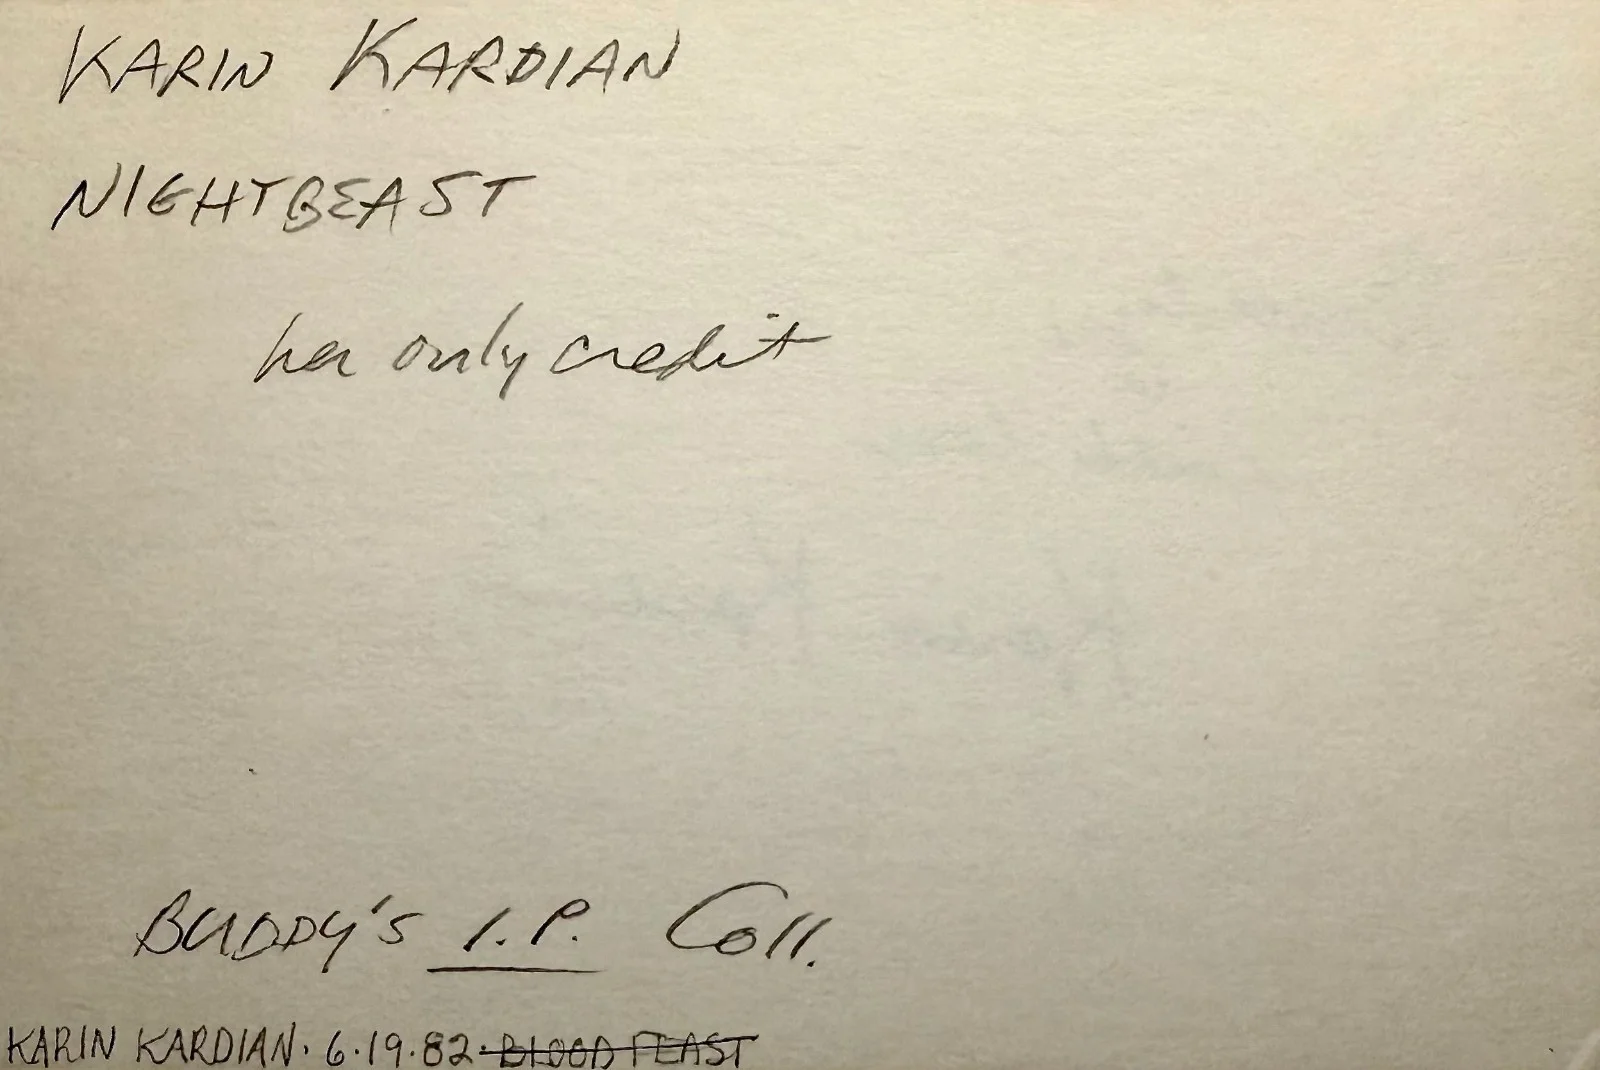 KARIN KARDIAN
NIGHTBEAST
her only credit
BUDDY'S I.P. Coll.
KARIN KARDIAN. 6.19.82. BLOOD FEAST